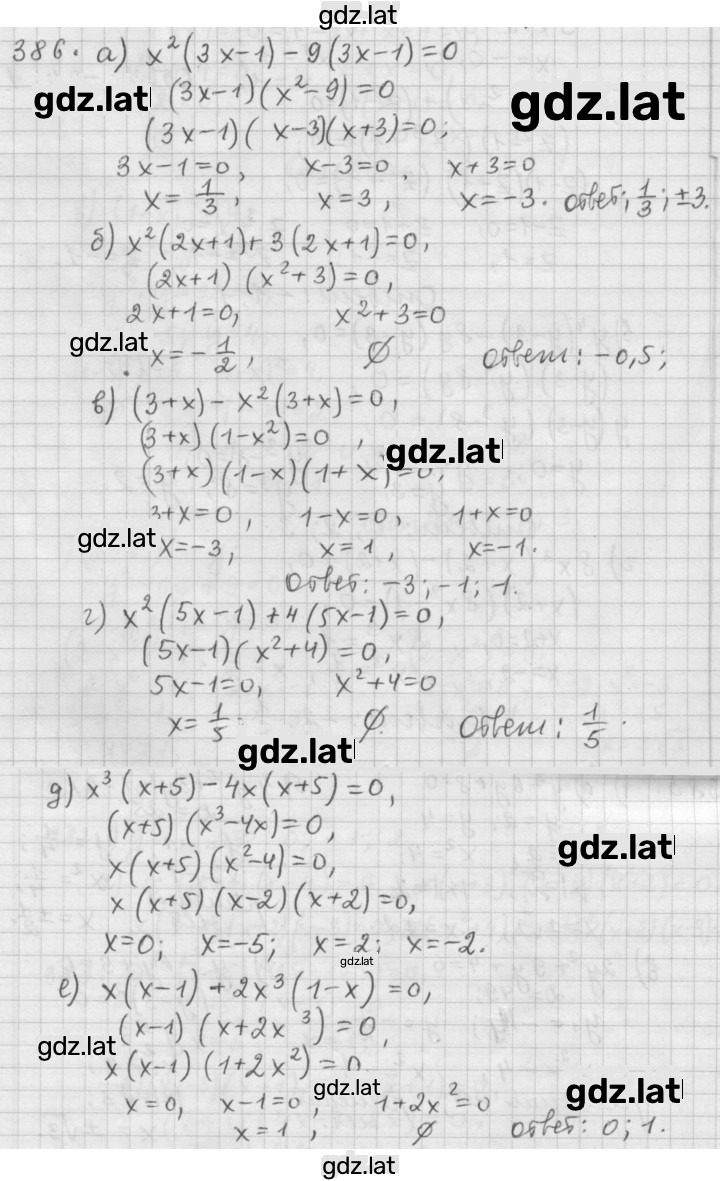 gdz.lat
386. а) x²(3x-1)-9(3x-1)=0
gdz.lat (3x-1)(x²-9)=0 gdz.lat
(3x-1)(x-3)(x+3)=0;
3x-1=0, x-3=0, x+3=0
x=1/3, x=3, x=-3. ответ; 1/3; ±3.
б) x²(2x+1)+3(2x+1)=0,
(2x+1)(x²+3)=0,
2x+1=0, x²+3=0
gdz.lat x=-1/2, ∅. ответ: -0,5;
в) (3+x)-x²(3+x)=0,
(3+x)(1-x²)=0, gdz.lat
(3+x)(1-x)(1+x)=0,
3+x=0, 1-x=0, 1+x=0
gdz.lat x=-3, x=1, x=-1.
Ответ: -3; -1; 1.
г) x²(5x-1)+4(5x-1)=0,
(5x-1)(x²+4)=0,
5x-1=0, x²+4=0
x=1/5. ∅. Ответ: 1/5.
gdz.lat
д) x³(x+5)-4x(x+5)=0,
(x+5)(x³-4x)=0,
gdz.lat
x(x+5)(x²-4)=0,
x(x+5)(x-2)(x+2)=0,
x=0; x=-5; x=2; x=-2.
gdz.lat
е) x(x-1)+2x³(1-x)=0,
(x-1)(x+2x³)=0,
gdz.lat
x(x-1)(1+2x²)=0
gdz.lat gdz.lat
x=0, x-1=0, 1+2x²=0
x=1, ∅ ответ: 0; 1.
gdz.lat